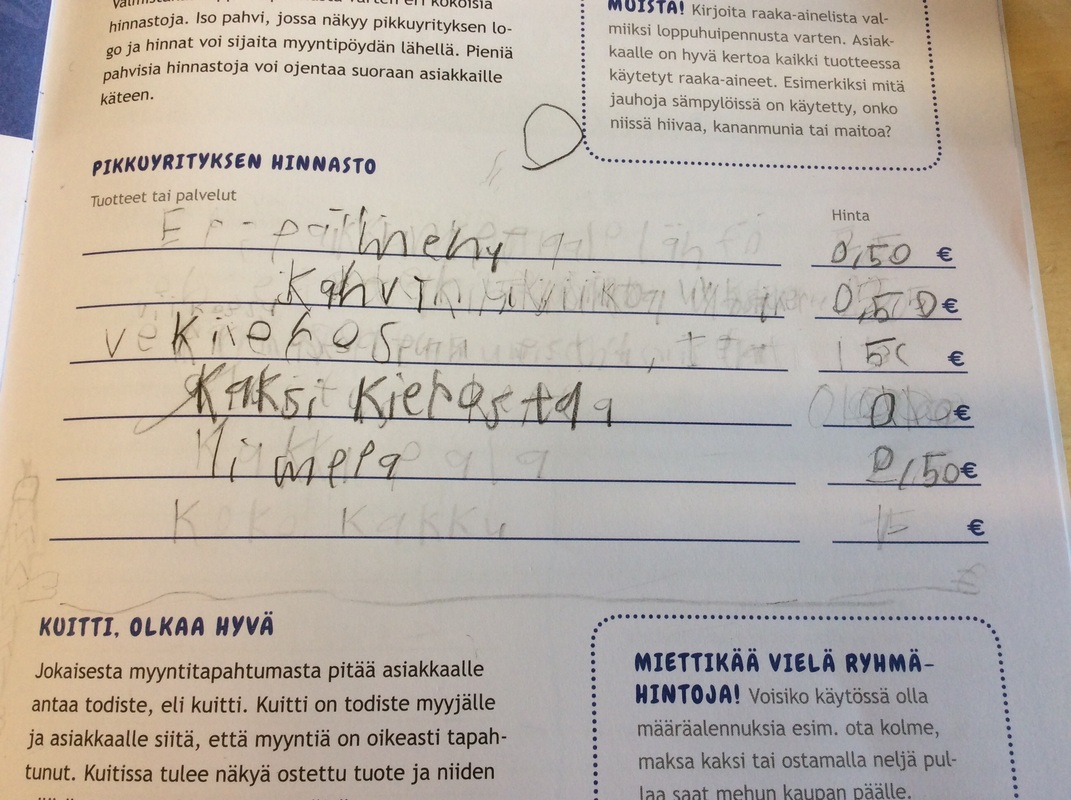 hinnastoja. Iso pahvi, jossa näkyy pikkuyrityksen lo-
go ja hinnat voi sijaita myyntipöydän lähellä. Pieniä
pahvisia hinnastoja voi ojentaa suoraan asiakkaille
käteen.
MUISTA! Kirjoita raaka-ainelista val-
miiksi loppuhuipennusta varten. Asiak-
kaalle on hyvä kertoa kaikki tuotteessa
käytetyt raaka-aineet. Esimerkiksi mitä
jauhoja sämpylöissä on käytetty, onko
niissä hiivaa, kananmunia tai maitoa?
PIKKUYRITYKSEN HINNASTO
Tuotteet tai palvelut
Hinta
0,50 €
Kahvi 0,50 €
€
Kaksi Kierosta 0 €
2,50 €
Koko Kakku 15 €
KUITTI, OLKAA HYVÄ
Jokaisesta myyntitapahtumasta pitää asiakkaalle
antaa todiste, eli kuitti. Kuitti on todiste myyjälle
ja asiakkaalle siitä, että myyntiä on oikeasti tapah-
tunut. Kuitissa tulee näkyä ostettu tuote ja niiden
MIETTIKÄÄ VIELÄ RYHMÄ-
HINTOJA! Voisiko käytössä olla
määräalennuksia esim. ota kolme,
maksa kaksi tai ostamalla neljä pul-
laa saat mehun kaupan päälle.